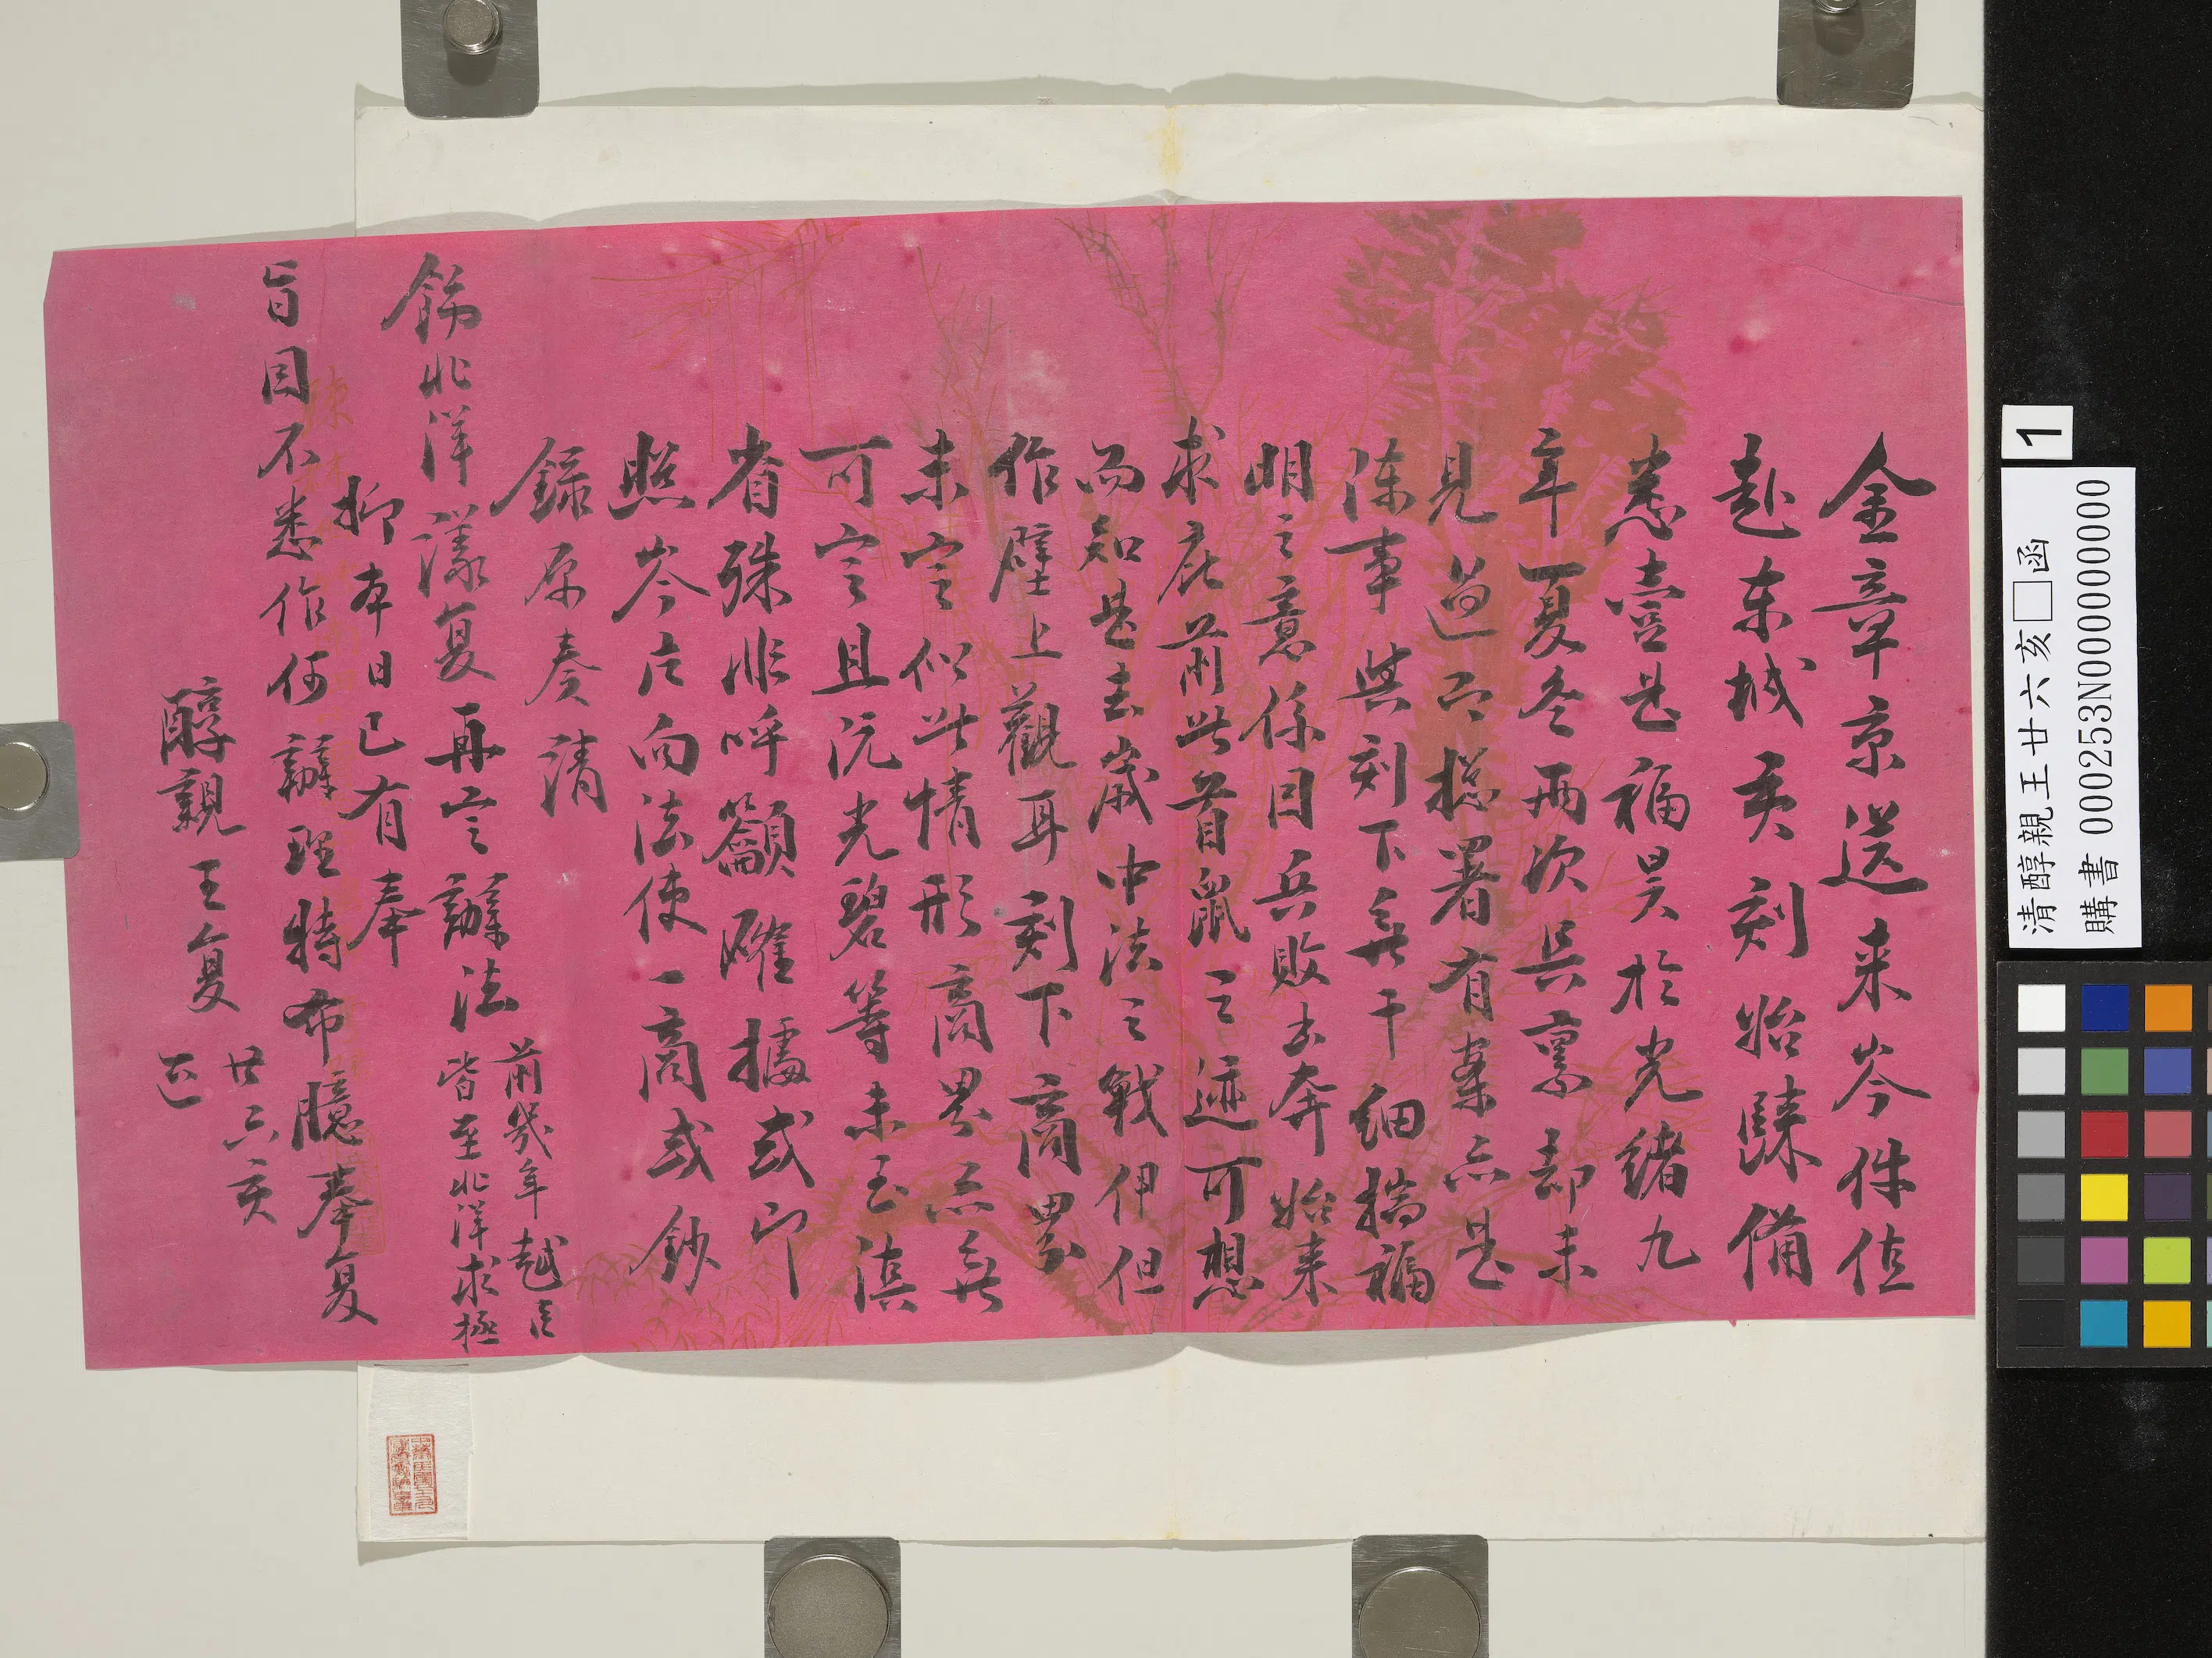 金章京送来岑件值
赴东城亥刻始歸備
悉壹是福昊於光緒九
年夏冬兩次具禀却未
見過而總署有案亦是
陳事與刻下無干細揣福
明之意係目兵敗出奔始来
求庇前此首鼠之迹可想
而知是去歲中法之戰伊但
作壁上觀耳刻下商界
未定似此情形商界亦無
可定且沅光碧等未至滇
省殊非呼籲確據或印
照岑片向法使一商或鈔
錄原奏請
飭北洋漾复再定辦法
前幾年越官
皆至北洋求極
抑本日已有奉
旨目不悉作何辦理特布臆奉复
醇親王复
廿六亥
正
1
清醇親王廿六亥□函
購書 000253N000000000